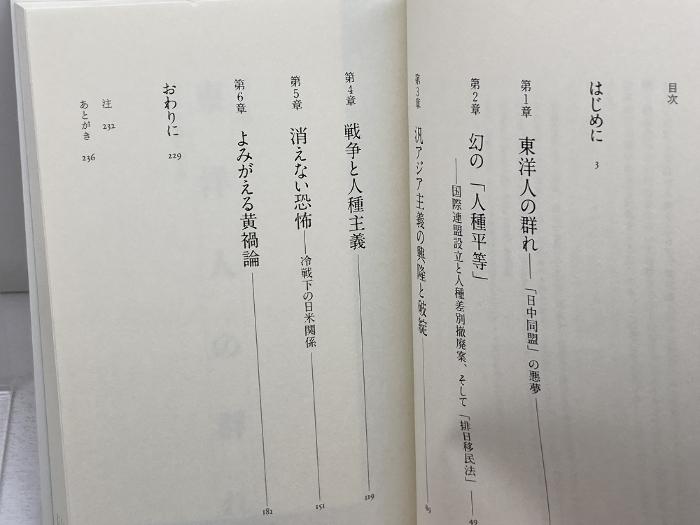 目次
はじめに 3
第1章 東洋人の群れ──「日中同盟」の悪夢
第2章 幻の「人種平等」
──国際連盟設立と人種差別撤廃案、そして「排日移民法」 49
第3章 汎アジア主義の興隆と破綻
第4章 戦争と人種主義 119
第5章 消えない恐怖──冷戦下の日米関係 151
第6章 よみがえる黄禍論 182
おわりに 229
注 232
あとがき 236